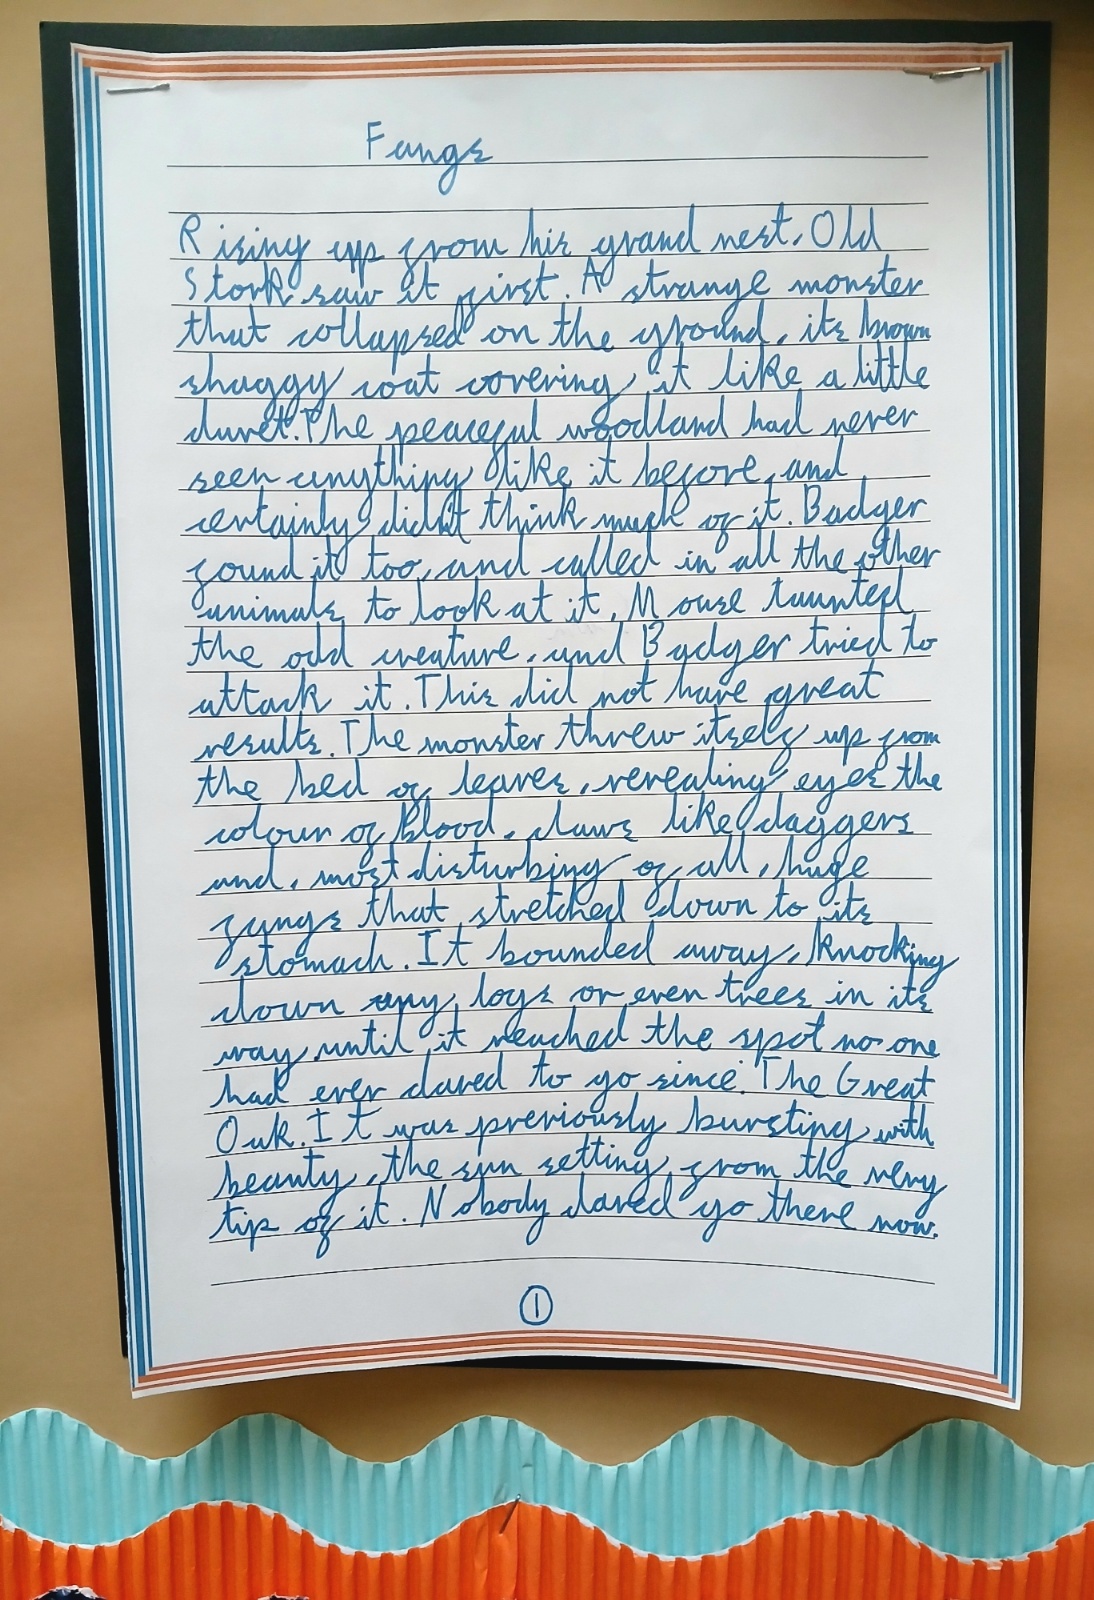 Fangs
Rising up from his grand nest, Old
Stork saw it first. A strange monster
that collapsed on the ground, its brown
shaggy coat covering it like a little
duvet. The peaceful woodland had never
seen anything like it before, and
certainly didn't think much of it. Badger
found it too, and called in all the other
animals to look at it. Mouse taunted
the odd creature, and Badger tried to
attack it. This did not have great
results. The monster threw itself up from
the bed of leaves, revealing eyes the
colour of blood, claws like daggers
and, most disturbing of all, huge
fangs that stretched down to its
stomach. It bounded away, knocking
down any logs or even trees in its
way until it reached the spot no one
had ever dared to go since. The Great
Oak. It was previously bursting with
beauty, the sun setting from the very
tip of it. Nobody dared go there now.
1